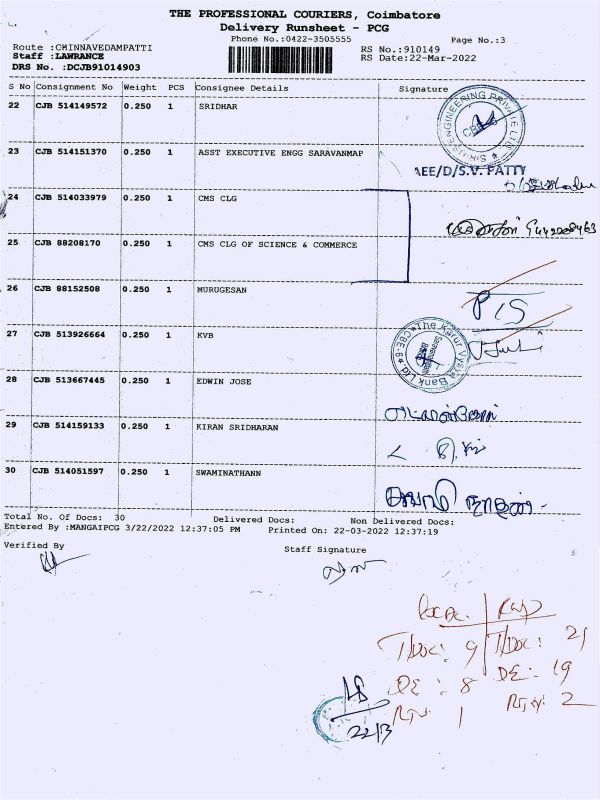 THE PROFESSIONAL COURIERS, Coimbatore
Delivery Runsheet - PCG
Phone No.:0422-3505555
Page No.:3
Route :CHINNAVEDAMPATTI
RS No.:910149
Staff :LAWRANCE
RS Date:22-Mar-2022
DRS No. :DCJB91014903
S No Consignment No Weight PCS Consignee Details Signature
22 CJB 514149572 0.250 1 SRIDHAR
23 CJB 514151370 0.250 1 ASST EXECUTIVE ENGG SARAVANMAP
AEE/D/S.V. PATTY
24 CJB 514033979 0.250 1 CMS CLG
25 CJB 88208170 0.250 1 CMS CLG OF SCIENCE & COMMERCE
26 CJB 88152508 0.250 1 MURUGESAN
27 CJB 513926664 0.250 1 KVB
The Karur Vysya Bank Ltd. CBE-6
28 CJB 513667445 0.250 1 EDWIN JOSE
29 CJB 514159133 0.250 1 KIRAN SRIDHARAN
30 CJB 514051597 0.250 1 SWAMINATHANN
Total No. Of Docs: 30 Delivered Docs: Non Delivered Docs:
Entered By :MANGAIPCG 3/22/2022 12:37:05 PM Printed On: 22-03-2022 12:37:19
Verified By
Staff Signature
T/Doc: 9 T/Doc: 21
DE: 8 DE: 19
1 2
22/3